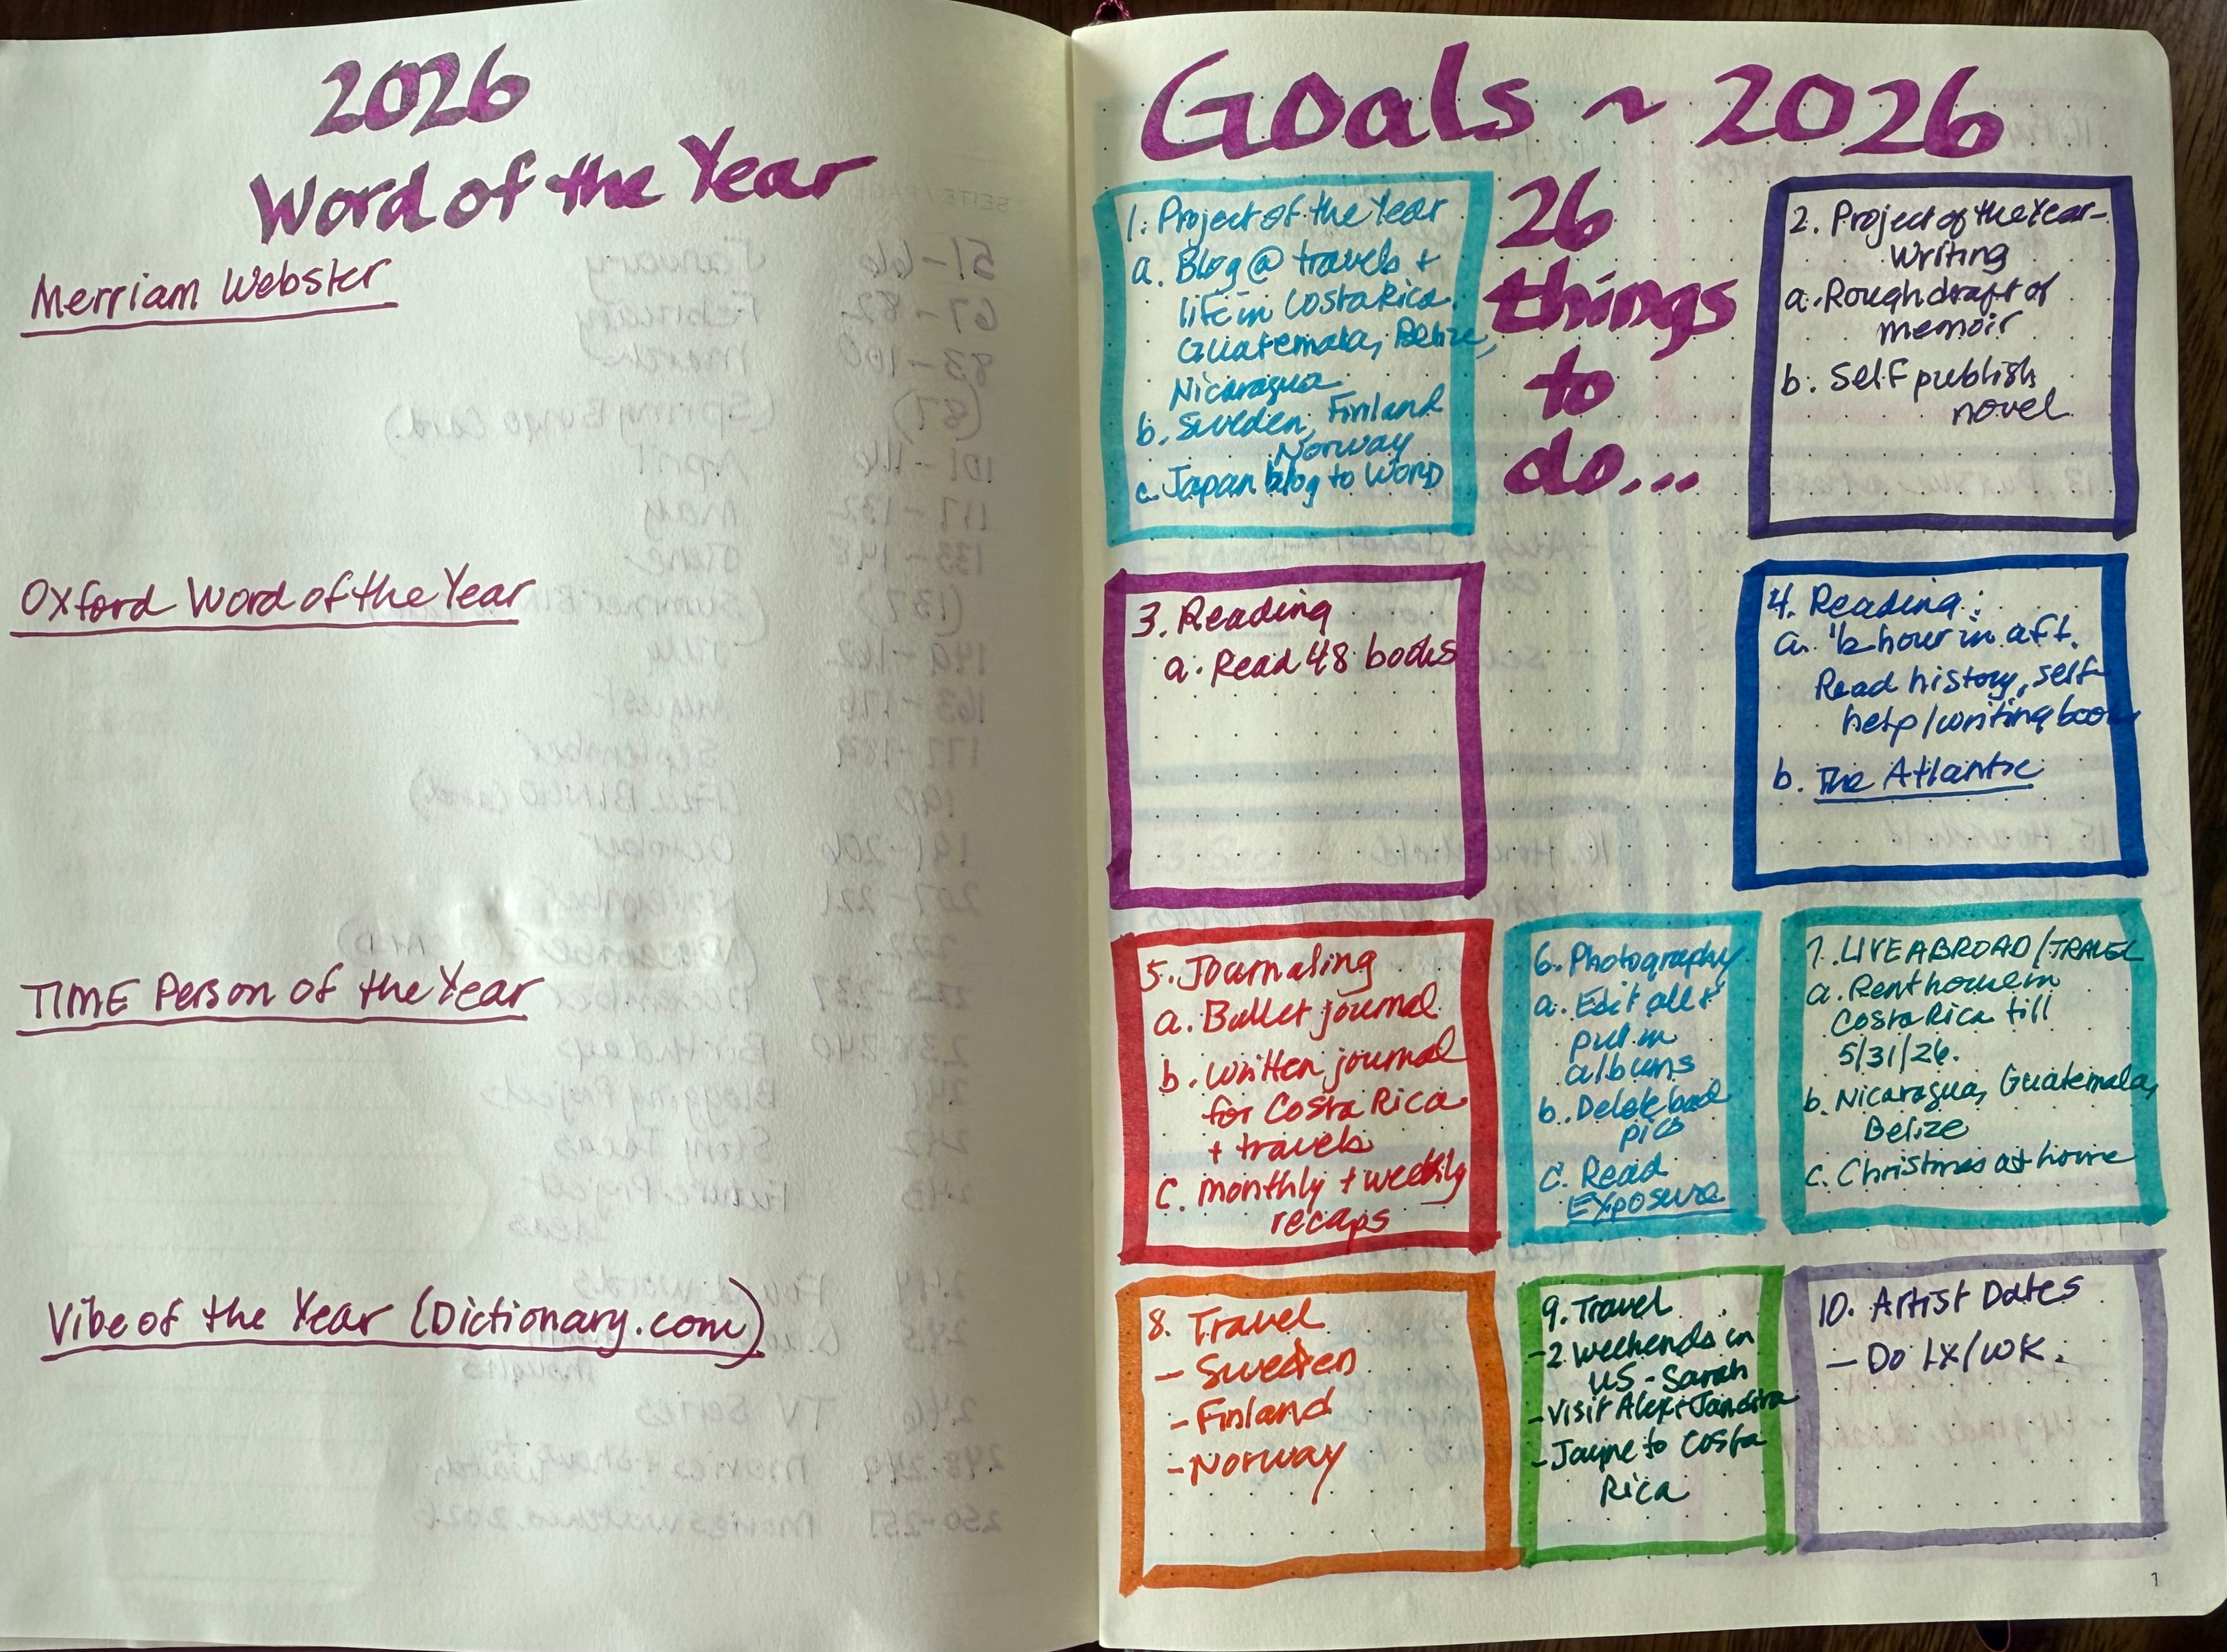 2026
Word of the Year
Merriam Webster
Oxford Word of the Year
TIME Person of the Year
Vibe of the Year (Dictionary.com)
Goals ~ 2026
26
things
to
do...
1. Project of the Year
a. Blog @ travels +
life in Costa Rica,
Guatemala, Belize,
Nicaragua
b. Sweden, Finland
Norway
c. Japan blog to WORD
2. Project of the Year-
Writing
a. Rough draft of
memoir
b. Self publish
novel
3. Reading
a. Read 48 books
4. Reading:
a. 1/2 hour in aft.
Read history, self-
help/writing book
b. The Atlantic
5. Journaling
a. Bullet journal
b. Written journal
for Costa Rica
+ travels
c. monthly + weekly
recaps
6. Photography
a. Edit all +
put in
albums
b. Delete bad
pics
c. Read
Exposure
7. LIVE ABROAD/TRAVEL
a. Rent house in
Costa Rica till
5/31/26.
b. Nicaragua, Guatemala,
Belize
c. Christmas at home
8. Travel
- Sweden
- Finland
- Norway
9. Travel
- 2 weekends in
US - Sarah
- Visit Alex + Jandira
- Jayne to Costa
Rica
10. Artist Dates
- Do 1x/wk.
1